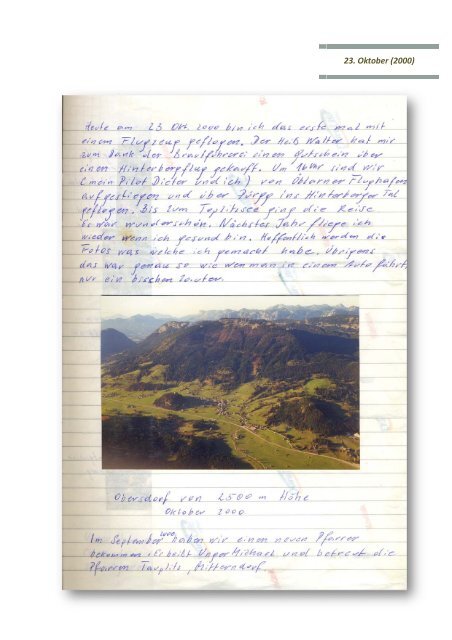 23. Oktober (2000)
Heute am 23 Okt. 2000 bin ich das erste mal mit
einem Flugzeug geflogen. Der Heß Walter hat mir
zum Dank der Brautfuhrerei einen Gutschein über
einen Hinterbergflug gekauft. Um 16 Uhr sind wir
(mein Pilot Dieter und ich) von Öblarner Flughafen
aufgestiegen und über Zürpp ins Hinterberger Tal
geflogen. Bis zum Toplitzsee ging die Reise
Es war wunderschön. Nächstes Jahr fliege ich
wieder wenn ich gesund bin. Hoffentlich werden die
Fotos was welche ich gemacht habe. Übrigens
das war genau so wie wenn man in einem Auto fährt,
nur ein bischen lauter.
Obersdorf von 2500 m Höhe
Oktober 2000
Im September 2000 haben wir einen neuen Pfarrer
bekommen er heißt Unger Michael und betreut die
Pfarren Tauplitz, Mitterndorf